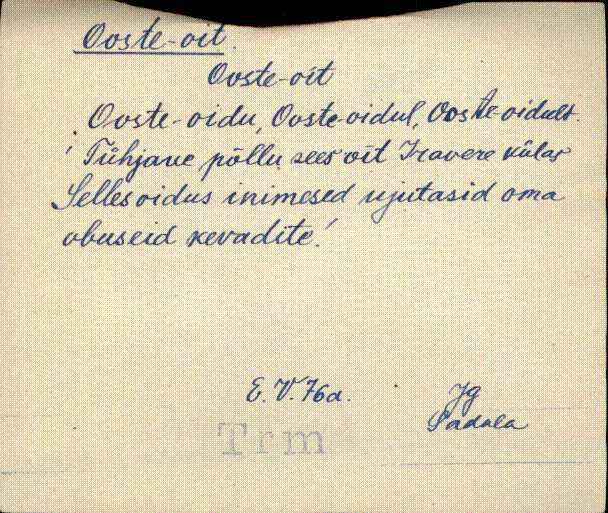 Ooste-oit.
Ooste-oit
Ooste-oidu, Ooste-oidul, Ooste-oidult.
Tühjane põllu sees oit Iravere külas
Selles oidus inimesed ujutasid oma
obuseid kevadite!
E. V. 76 a.
Jg
Sadala
Trm